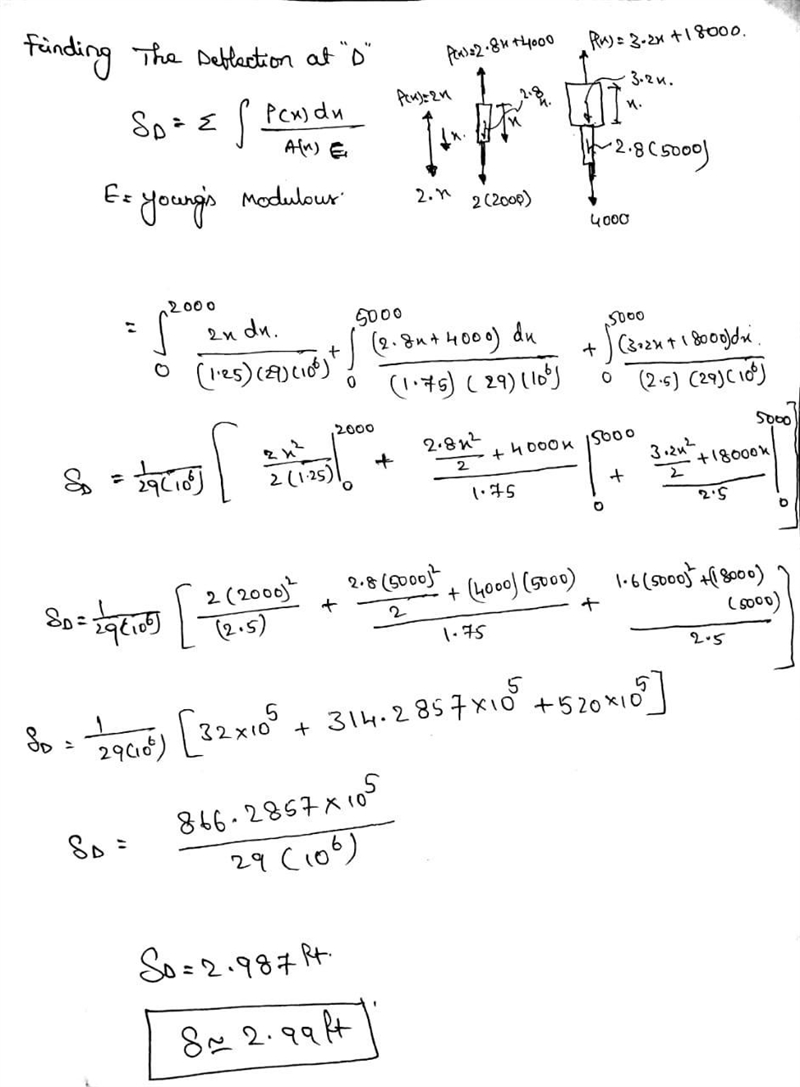 Finding The Deflection at "D"
δD = Σ ∫ P(x) dx / A(x) E
E = young's Modulous.
P(x)=2x
x.
2.x
P(x)=2.8x+4000
2.8x.
x
2(2000)
P(x) = 3.2x + 18000.
3.2x.
x.
2.8(5000)
4000
= ∫₀²⁰⁰⁰ 2x dx. / (1.25)(29)(10⁶) + ∫₀⁵⁰⁰⁰ (2.8x + 4000) dx / (1.75) (29) (10⁶) + ∫₀⁵⁰⁰⁰ (3.2x + 18000)dx. / (2.5) (29)(10⁶)
δD = 1/29(10⁶) [ 2x²/2(1.25) |₀²⁰⁰⁰ + (2.8x²/2 + 4000x)/1.75 |₀⁵⁰⁰⁰ + (3.2x²/2 + 18000x)/2.5 |₀⁵⁰⁰⁰ ]
δD = 1/29(10⁶) [ 2(2000)²/(2.5) + (2.8(5000)²/2 + (4000)(5000))/1.75 + (1.6(5000)² + (18000)(5000))/2.5 ]
δD = 1/29(10⁶) [32×10⁵ + 314.2857×10⁵ + 520×10⁵]
δD = 866.2857×10⁵ / 29(10⁶)
δD = 2.987 ft.
δ ≃ 2.99 ft